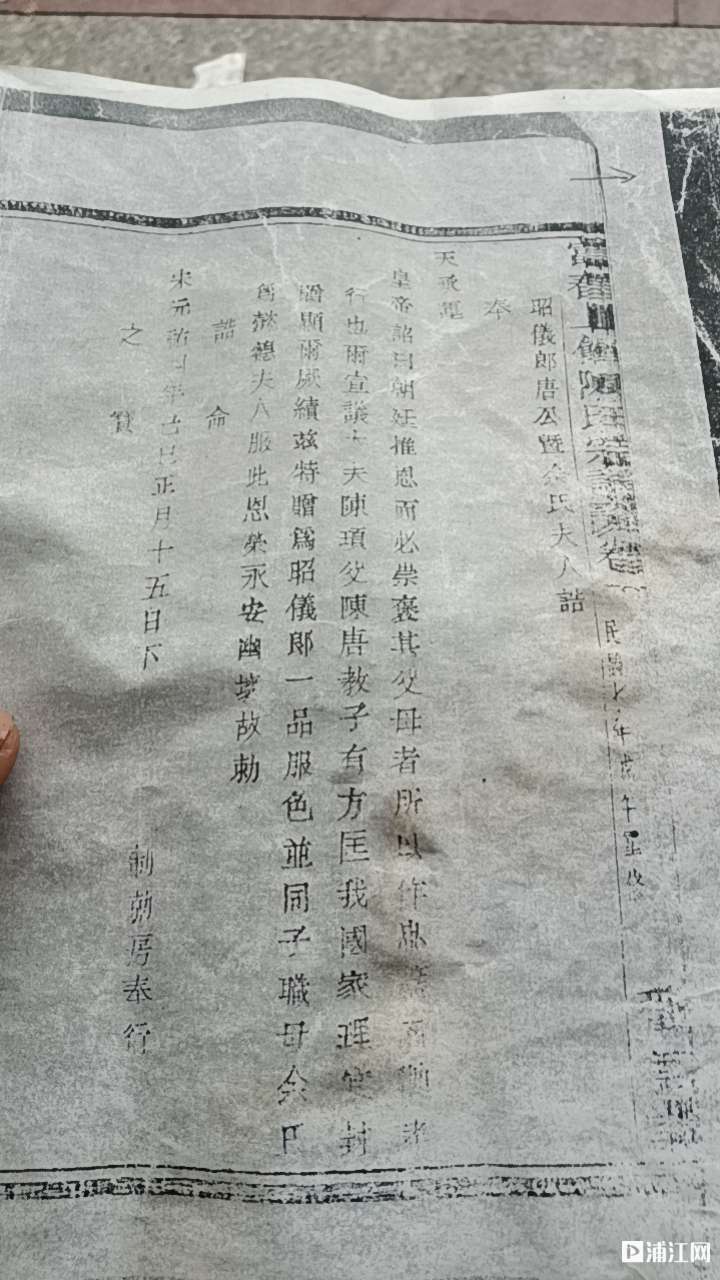 陳氏宗譜卷
昭儀郎唐公暨余氏夫人誥
奉
天承運
皇帝詔曰朝廷推恩而必崇褒其父母者所以作忠
行也爾宣議大夫陳頊父陳唐教子有方匡我國家理宜封
贈顯爾厥績茲特贈爲昭儀郎一品服色並同子職母余氏
爲懿德夫人服此恩榮永安幽
故勅
誥命
宋元祐四年己巳正月十五日下
之寶
制勅房奉行
浦江网